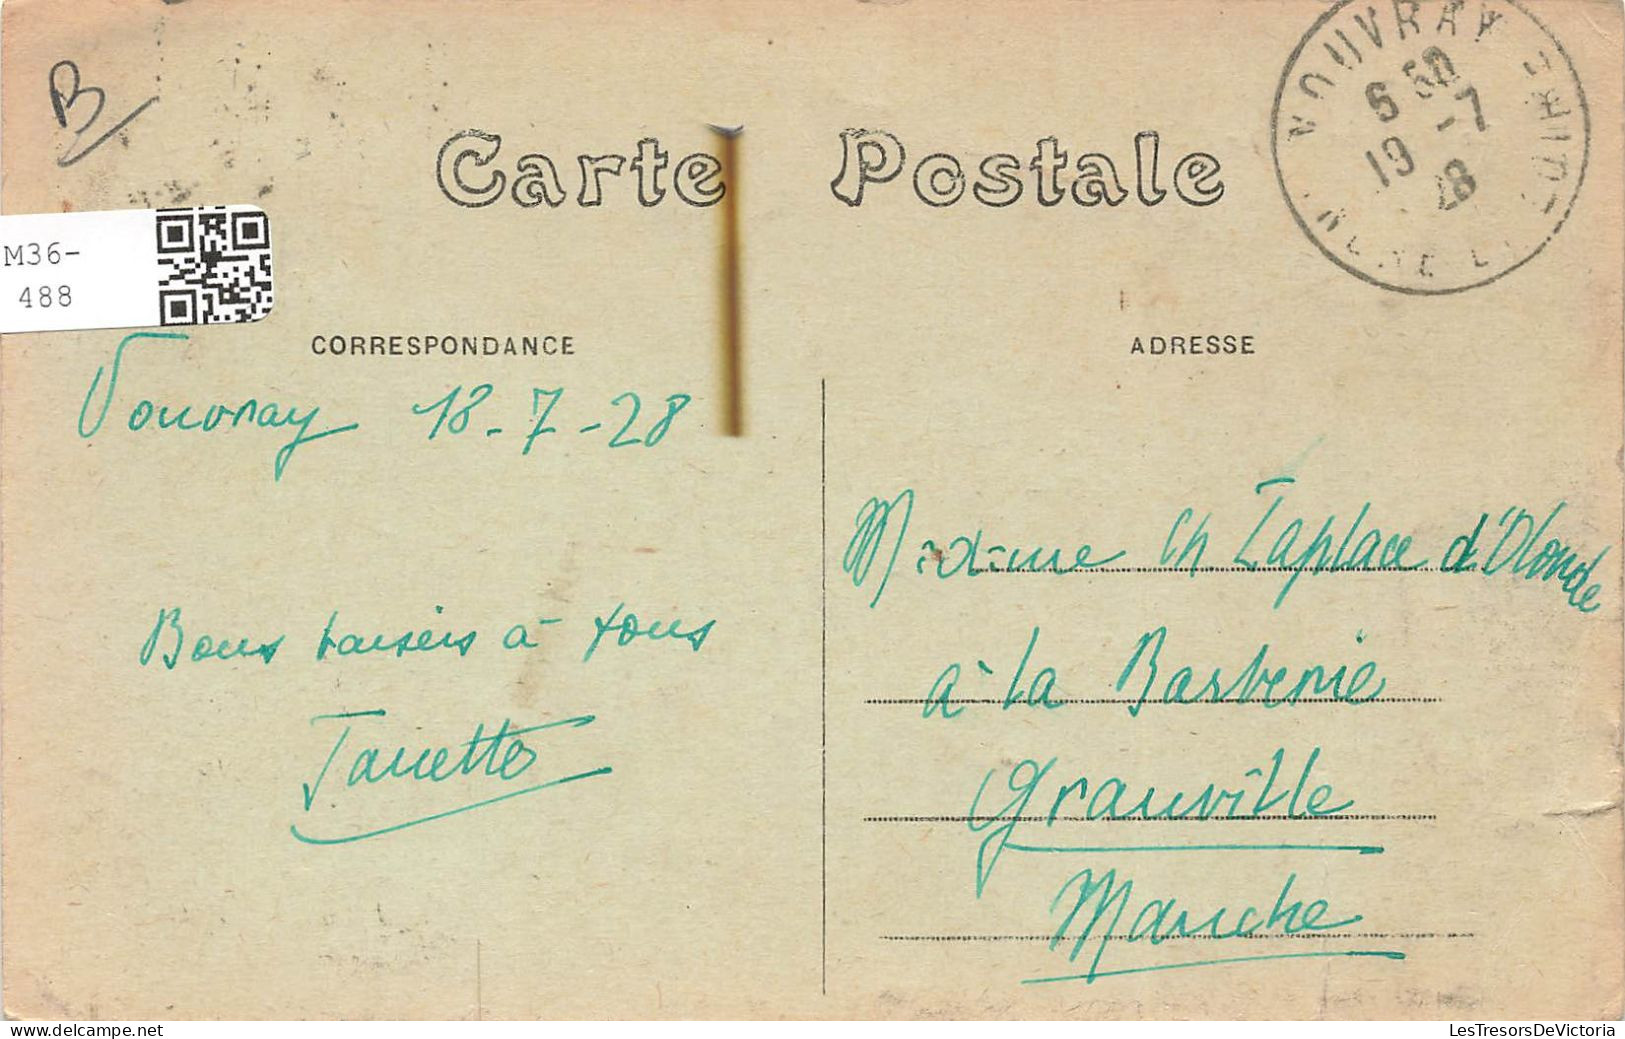 B
Carte Postale
VOUVRAY
6 50
19 -7
28
INDRE-ET-LOIRE
M36-
488
CORRESPONDANCE
ADRESSE
Vouvray 18-7-28
Bons baisers à tous
Madame Ch. Laplace d'Olonde
à la
Granville
Manche
LesTresorsDeVictoria